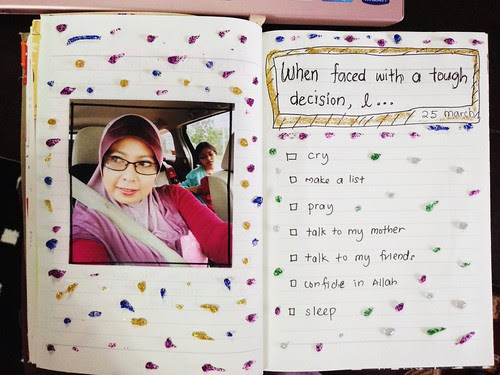 When faced with a tough
decision, I...
25 march
cry
make a list
pray
talk to my mother
talk to my friends
confide in Allah
sleep